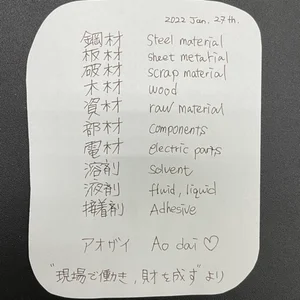 2022 Jan. 27th.
鋼材 Steel material
板材 sheet metarial
破材 scrap material
木材 wood
資材 raw material
部材 components
電材 electric parts
溶剤 Solvent
液剤 fluid, liquid
接着剤 Adhesive
アオザイ Ao dai ♡
"現場で働き、財を成す"より